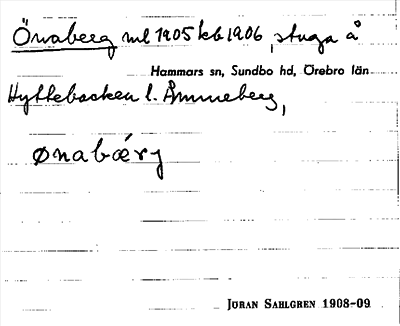 Önaberg ml 1905 kb 1906, stuga å
Hammars sn, Sundbo hd, Örebro län
Hyttebacken l. Åmmeberg,
ønabærj
JÖRAN SAHLGREN 1908-09